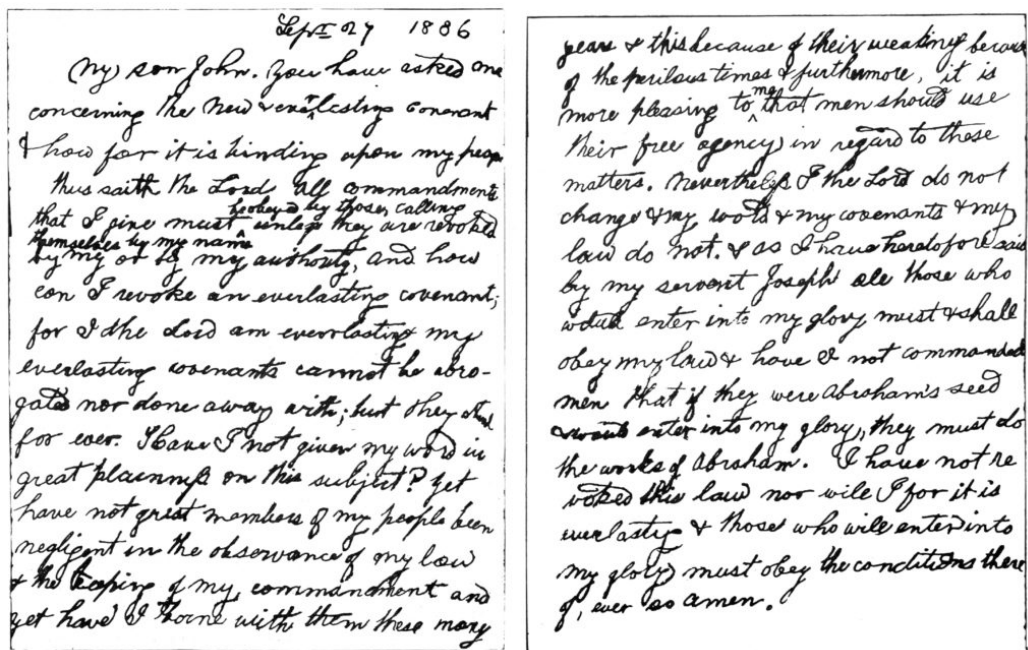 Sept 27 1886
My son John. You have asked me
concerning the New & everlasting covenant
& how far it is binding upon my people
thus saith the Lord all commandments
that I give must be obeyed by those calling
themselves by my name unless they are revoked
by my or by my authority, and how
can I revoke an everlasting covenant;
for I the Lord am everlasting my
everlasting covenants cannot be abro-
gated nor done away with; but they stand
for ever. Have I not given my word in
great plainness on this subject? Yet
have not great numbers of my people been
negligent in the observance of my law
& the keeping of my commandment and
yet have I borne with them these many
years & this because of their weakness because
of the perilous times & furthermore, it is
more pleasing to me that men should use
their free agency in regard to these
matters. Nevertheless I the Lord do not
change & my word & my covenants & my
law do not. & as I have heretofore said
by my servant Joseph all those who
would enter into my glory must & shall
obey my law & have I not commanded
men that if they were Abraham's seed
& would enter into my glory, they must do
the works of Abraham. I have not re
voked this law nor will I for it is
everlasting & those who will enter into
my glory must obey the conditions there
of, even so amen.